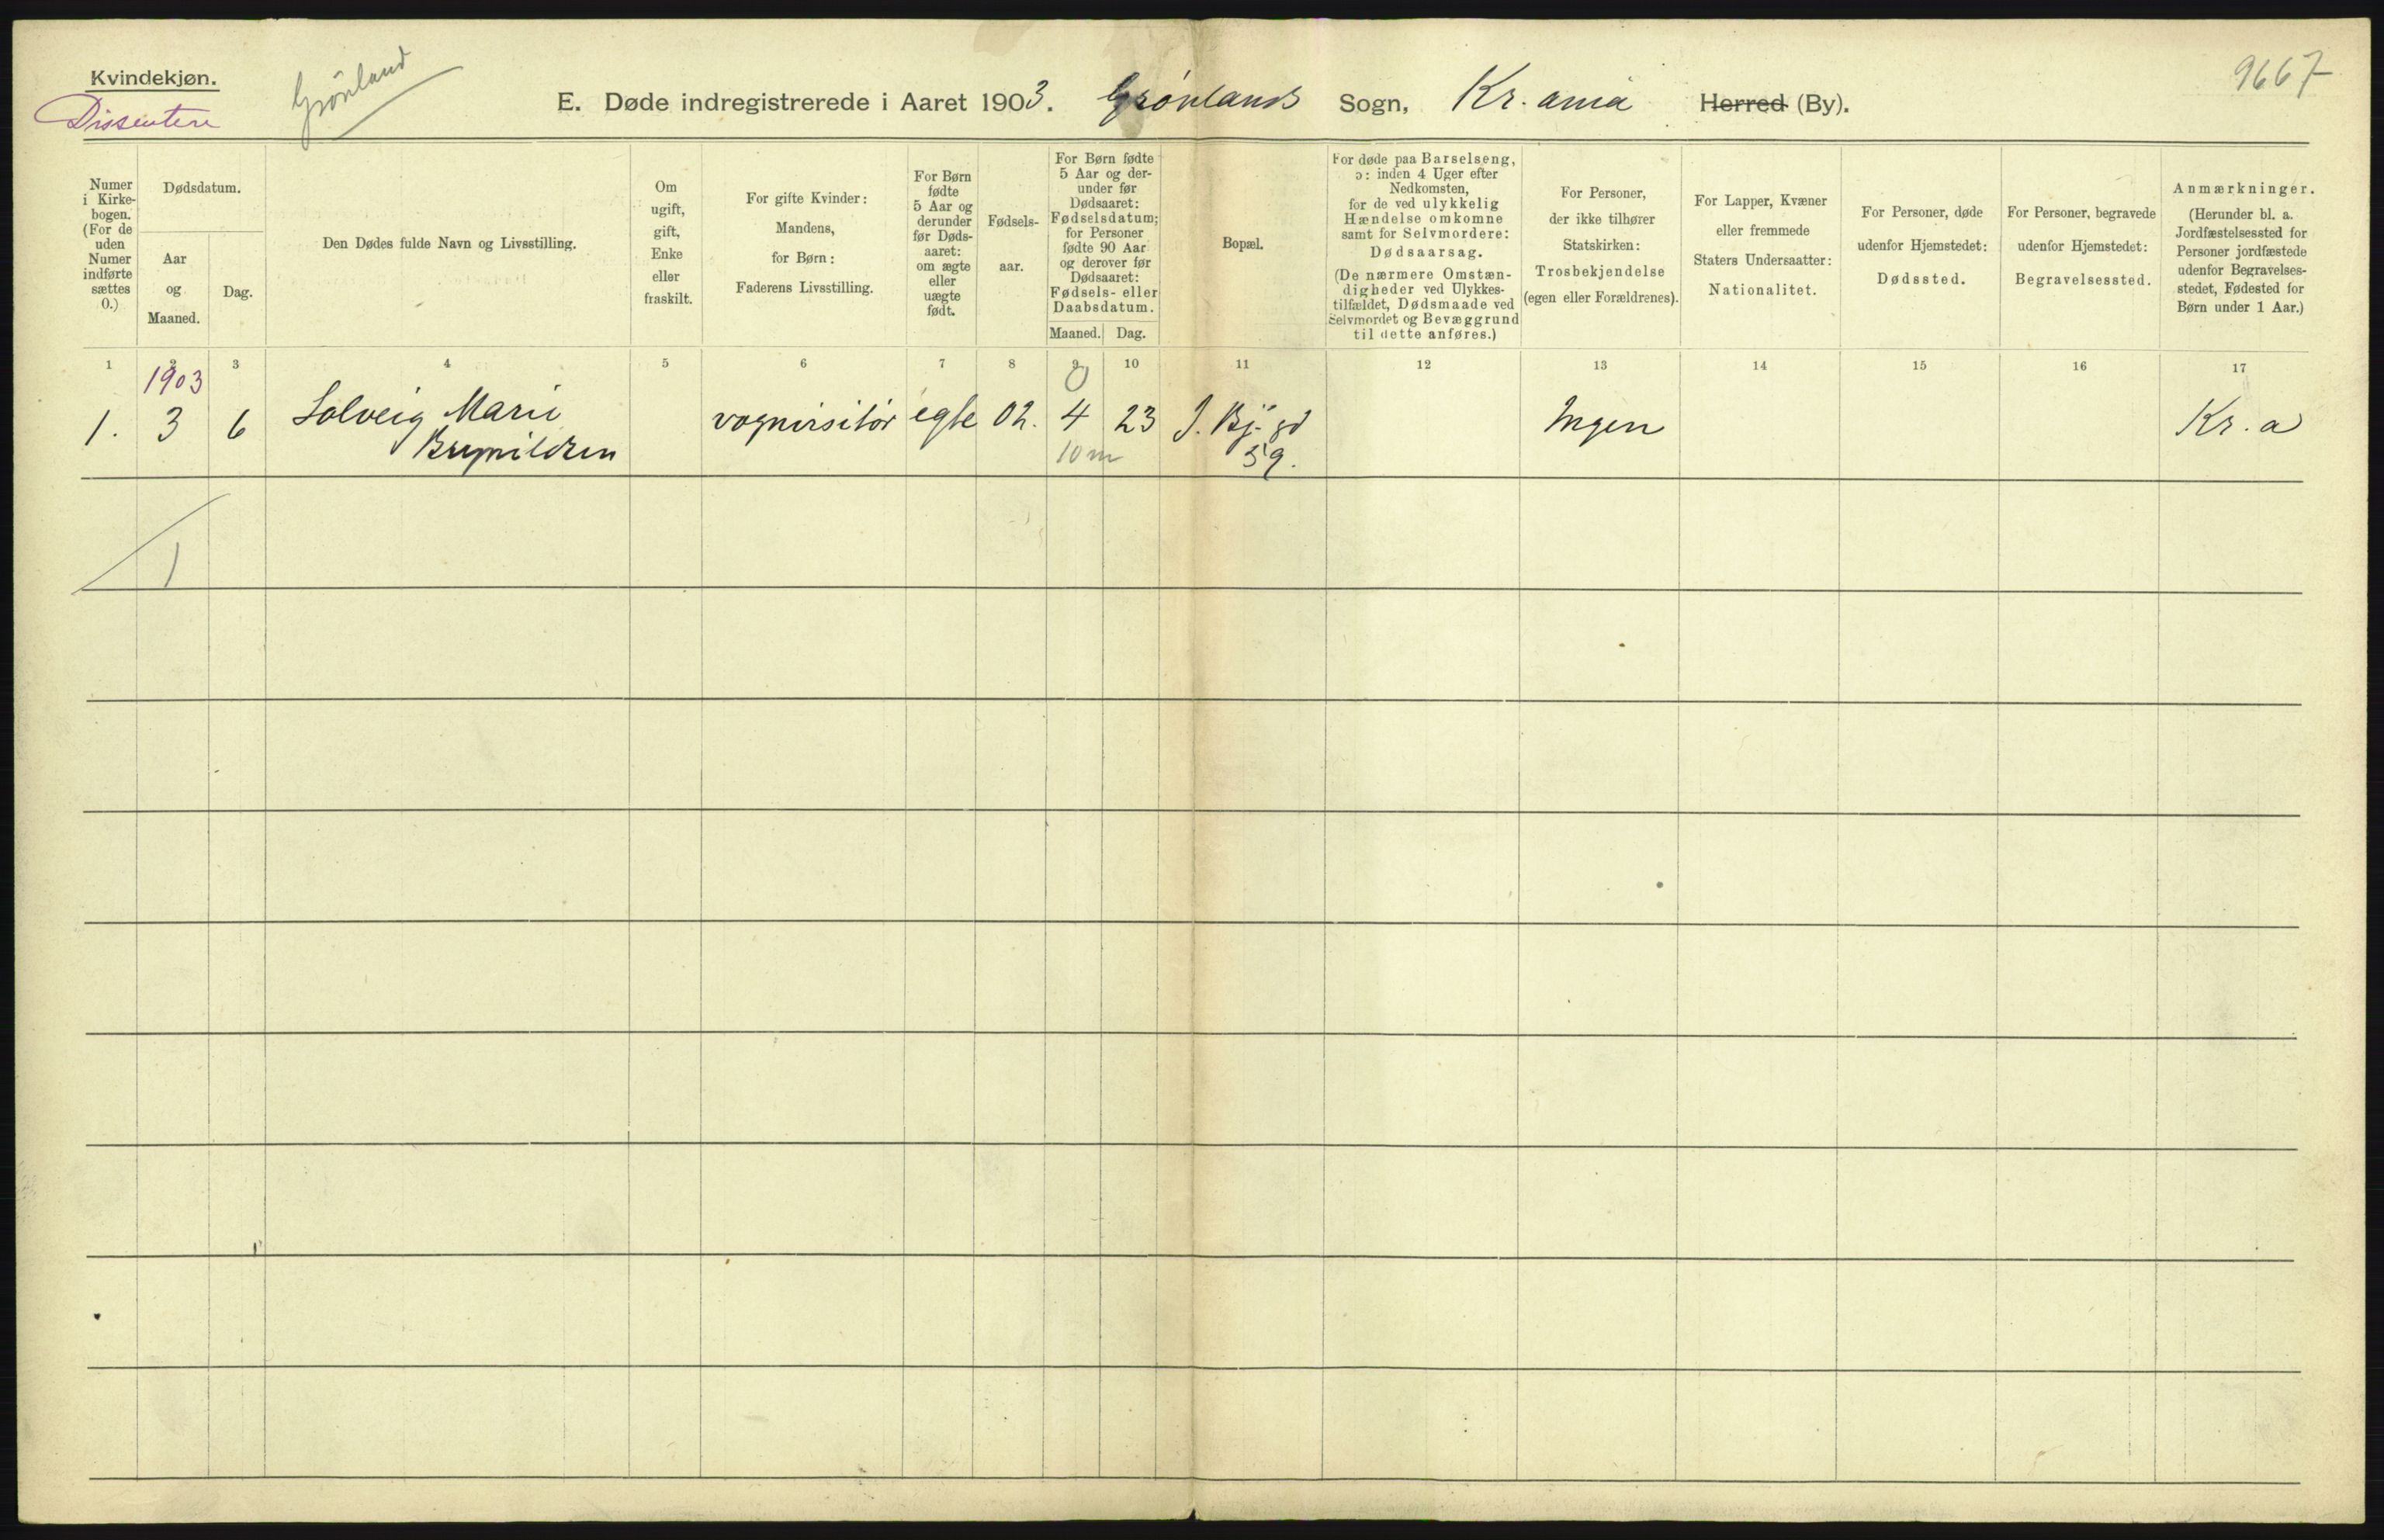 Kvindekjøn.
Dissentere
Grönland
E. Døde indregistrerede i Aaret 1903. Grönlands Sogn, Kr. ania Herred (By).
9667
Numer
i Kirke-
bogen.
(For de
uden
Numer
indførte
sættes
0.)
Dødsdatum.
Aar
og
Maaned.
Dag.
Den Dødes fulde Navn og Livsstilling.
Om
ugift,
gift,
Enke
eller
fraskilt.
For gifte Kvinder:
Mandens,
for Børn:
Faderens Livsstilling.
For Børn
fødte
5 Aar og
derunder
før Døds-
aaret:
om ægte
eller
uægte
født.
Fødsels-
aar.
For Børn fødte
5 Aar og der-
under før
Dødsaaret:
Fødselsdatum;
for Personer
fødte 90 Aar
og derover før
Dødsaaret:
Fødsels- eller
Daabsdatum.
Maaned. Dag.
Bopæl.
For døde paa Barselseng,
ɔ: inden 4 Uger efter
Nedkomsten,
for de ved ulykkelig
Hændelse omkomne
samt for Selvmordere:
Dødsaarsag.
(De nærmere Omstæn-
digheder ved Ulykkes-
tilfældet, Dødsmaade ved
Selvmordet og Bevæggrund
til dette anføres.)
For Personer,
der ikke tilhører
Statskirken:
Trosbekjendelse
(egen eller Forældrenes).
For Lapper, Kvæner
eller fremmede
Staters Undersaatter:
Nationalitet.
For Personer, døde
udenfor Hjemstedet:
Dødssted.
For Personer, begravede
udenfor Hjemstedet:
Begravelsessted.
Anmærkninger.
(Herunder bl. a.
Jordfæstelsessted for
Personer jordfæstede
udenfor Begravelses-
stedet, Fødested for
Børn under 1 Aar.)
1 2 3 4 5 6 7 8 9 10 11 12 13 14 15 16 17
1903 0
1. 3 6 Solveig Marie vognvisitör egte 02. 4 23 J. Bj. gd Ingen Kr. a
Brynildsen 10 m 59.
1